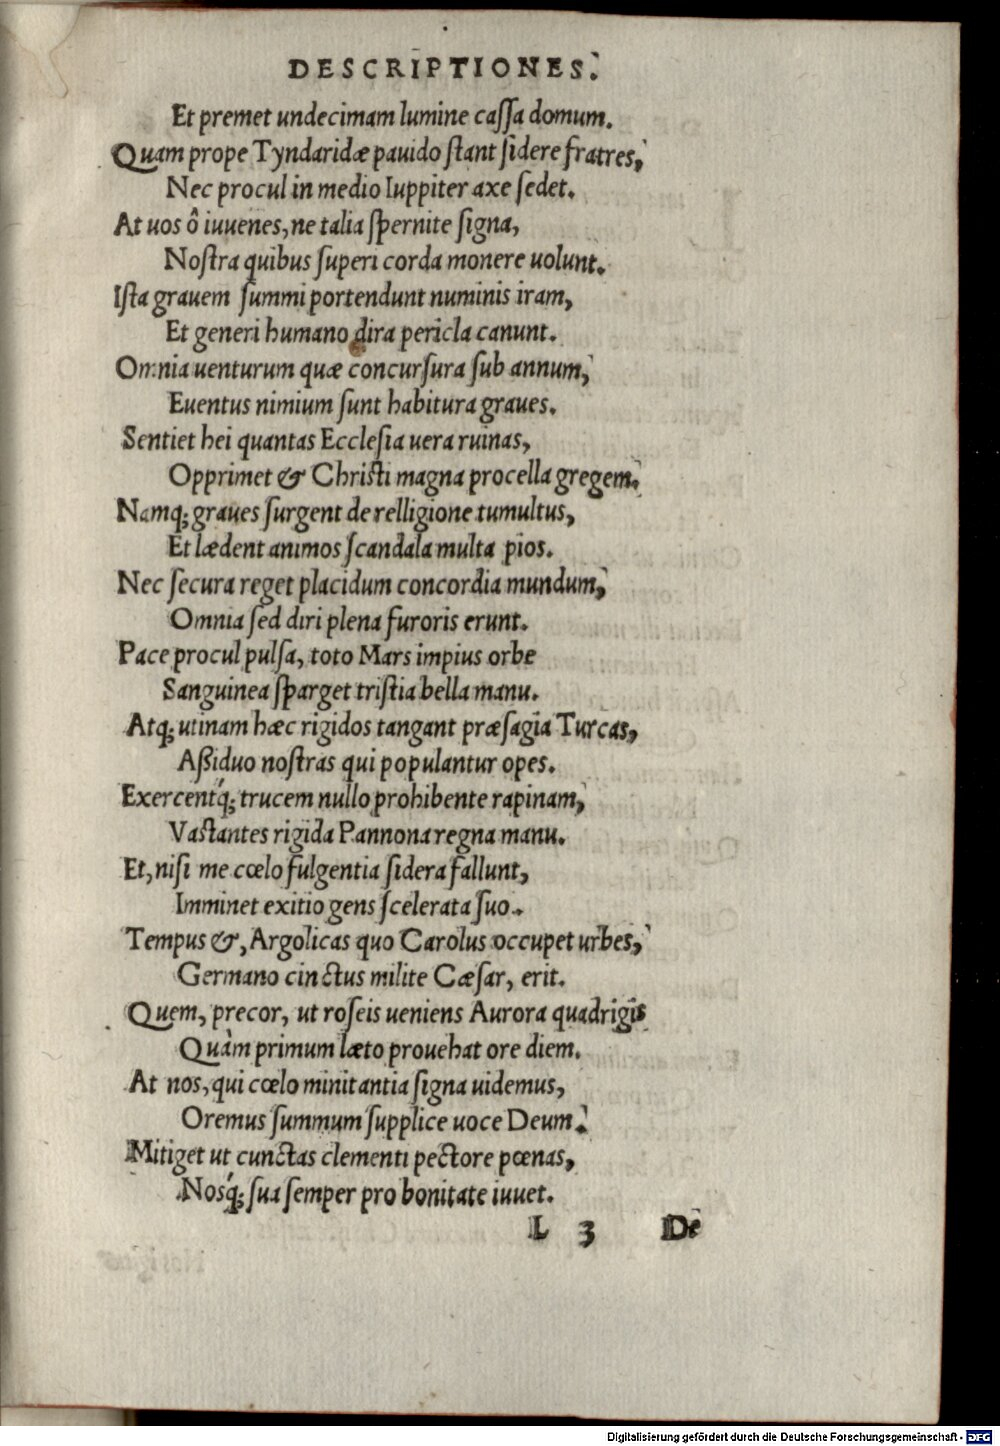 DESCRIPTIONES.
Et premet undecimam lumine caſſa domum.
Quam prope Tyndaridæ pauido ſtant ſidere fratres,
Nec procul in medio Iuppiter axe ſedet.
At uos ô iuuenes, ne talia ſpernite ſigna,
Noſtra quibus ſuperi corda monere uolunt.
Iſta grauem ſummi portendunt numinis iram,
Et generi humano dira pericla canunt.
Omnia uenturum quæ concurſura ſub annum,
Euentus nimium ſunt habitura graues.
Sentiet hei quantas Eccleſia uera ruinas,
Opprimet & Chriſti magna procella gregem.
Namq; graues ſurgent de relligione tumultus,
Et lædent animos ſcandala multa pios.
Nec ſecura reget placidum concordia mundum,
Omnia ſed diri plena furoris erunt.
Pace procul pulſa, toto Mars impius orbe
Sanguinea ſparget triſtia bella manu.
Atq; utinam hæc rigidos tangant præſagia Turcas,
Aßiduo noſtras qui populantur opes.
Exercentq́; trucem nullo prohibente rapinam,
Vaſtantes rigida Pannona regna manu.
Et, niſi me cœlo fulgentia ſidera fallunt,
Imminet exitio gens ſcelerata ſuo.
Tempus &, Argolicas quo Carolus occupet urbes,
Germano cinctus milite Cæſar, erit.
Quem, precor, ut roſeis ueniens Aurora quadrigis
Quàm primum læto prouehat ore diem.
At nos, qui cœlo minitantia ſigna uidemus,
Oremus ſummum ſupplice uoce Deum.
Mitiget ut cunctas clementi pectore pœnas,
Nosq́; ſua ſemper pro bonitate iuuet.
L 3 De
Digitalisierung gefördert durch die Deutsche Forschungsgemeinschaft - DFG